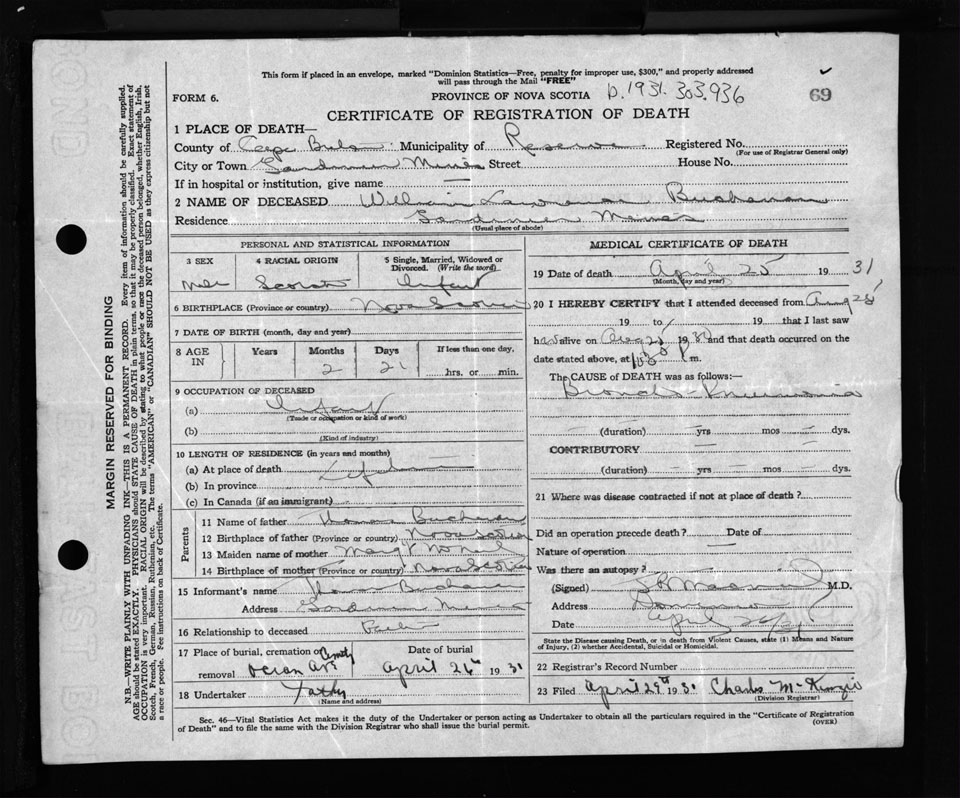 This form if placed in an envelope, marked "Dominion Statistics—Free, penalty for improper use, $300," and properly addressed
will pass through the Mail "FREE"
FORM 6. PROVINCE OF NOVA SCOTIA D.1931.303.936 69
CERTIFICATE OF REGISTRATION OF DEATH
1 PLACE OF DEATH—
County of Cape Municipality of Reserve Registered No.
(For use of Registrar General only)
City or Town Mines Street House No.
If in hospital or institution, give name —
2 NAME OF DECEASED William Buchanan
Residence Mines
(Usual place of abode)
PERSONAL AND STATISTICAL INFORMATION
3 SEX 4 RACIAL ORIGIN 5 Single, Married, Widowed or Divorced. (Write the word)
Infant
6 BIRTHPLACE (Province or country) Nova Scotia
7 DATE OF BIRTH (month, day and year)
8 AGE IN Years Months Days If less than one day,
2 21 hrs. or min.
9 OCCUPATION OF DECEASED
(a) Infant
(Trade or occupation or kind of work)
(b)
(Kind of industry)
10 LENGTH OF RESIDENCE (in years and months)
(a) At place of death
(b) In province
(c) In Canada (if an immigrant)
Parents
11 Name of father Thomas Buchanan
12 Birthplace of father (Province or country) Nova Scotia
13 Maiden name of mother Margt McNeil
14 Birthplace of mother (Province or country) Nova Scotia
15 Informant's name Thomas Buchanan
Address Mines
16 Relationship to deceased Father
17 Place of burial, cremation or removal April 26th 1931
Date
18 Undertaker
(Name and address)
MEDICAL CERTIFICATE OF DEATH
19 Date of death April 25 19 31
(Month, day and year)
20 I HEREBY CERTIFY that I attended deceased from
19 to 19 that I last saw
h alive on 19 31 and that death occurred on the
date stated above, at m.
The CAUSE OF DEATH was as follows:—
Broncho-Pneumonia
(duration) yrs mos dys.
CONTRIBUTORY
(duration) yrs mos dys.
21 Where was disease contracted if not at place of death?
Did an operation precede death? Date of
Nature of operation —
Was there an autopsy?
(Signed) M.D.
Address
Date April
State the Disease causing Death, or in death from Violent Causes, state (1) Means and Nature
of Injury, (2) whether Accidental, Suicidal or Homicidal.
22 Registrar's Record Number
23 Filed April 29th 1931 Charles McKenzie
(Division Registrar)
Sec. 46—Vital Statistics Act makes it the duty of the Undertaker or person acting as Undertaker to obtain all the particulars required in the "Certificate of Registration
of Death" and to file the same with the Division Registrar who shall issue the burial permit. (OVER)
MARGIN RESERVED FOR BINDING
N.B.—WRITE PLAINLY WITH UNFADING INK—THIS IS A PERMANENT RECORD. Every item of information should be carefully supplied.
AGE should be stated EXACTLY. PHYSICIANS should STATE CAUSE OF DEATH in plain terms, so that it may be properly classified. Exact statement of
OCCUPATION is very important. RACIAL ORIGIN will be described by stating to what people or race the deceased person belonged, whether English, Irish,
Scotch, French, German, Russian, Ruthenian, etc. The terms "AMERICAN" or "CANADIAN" SHOULD NOT BE USED as they express citizenship but not
a race or people. See instructions on back of Certificate.